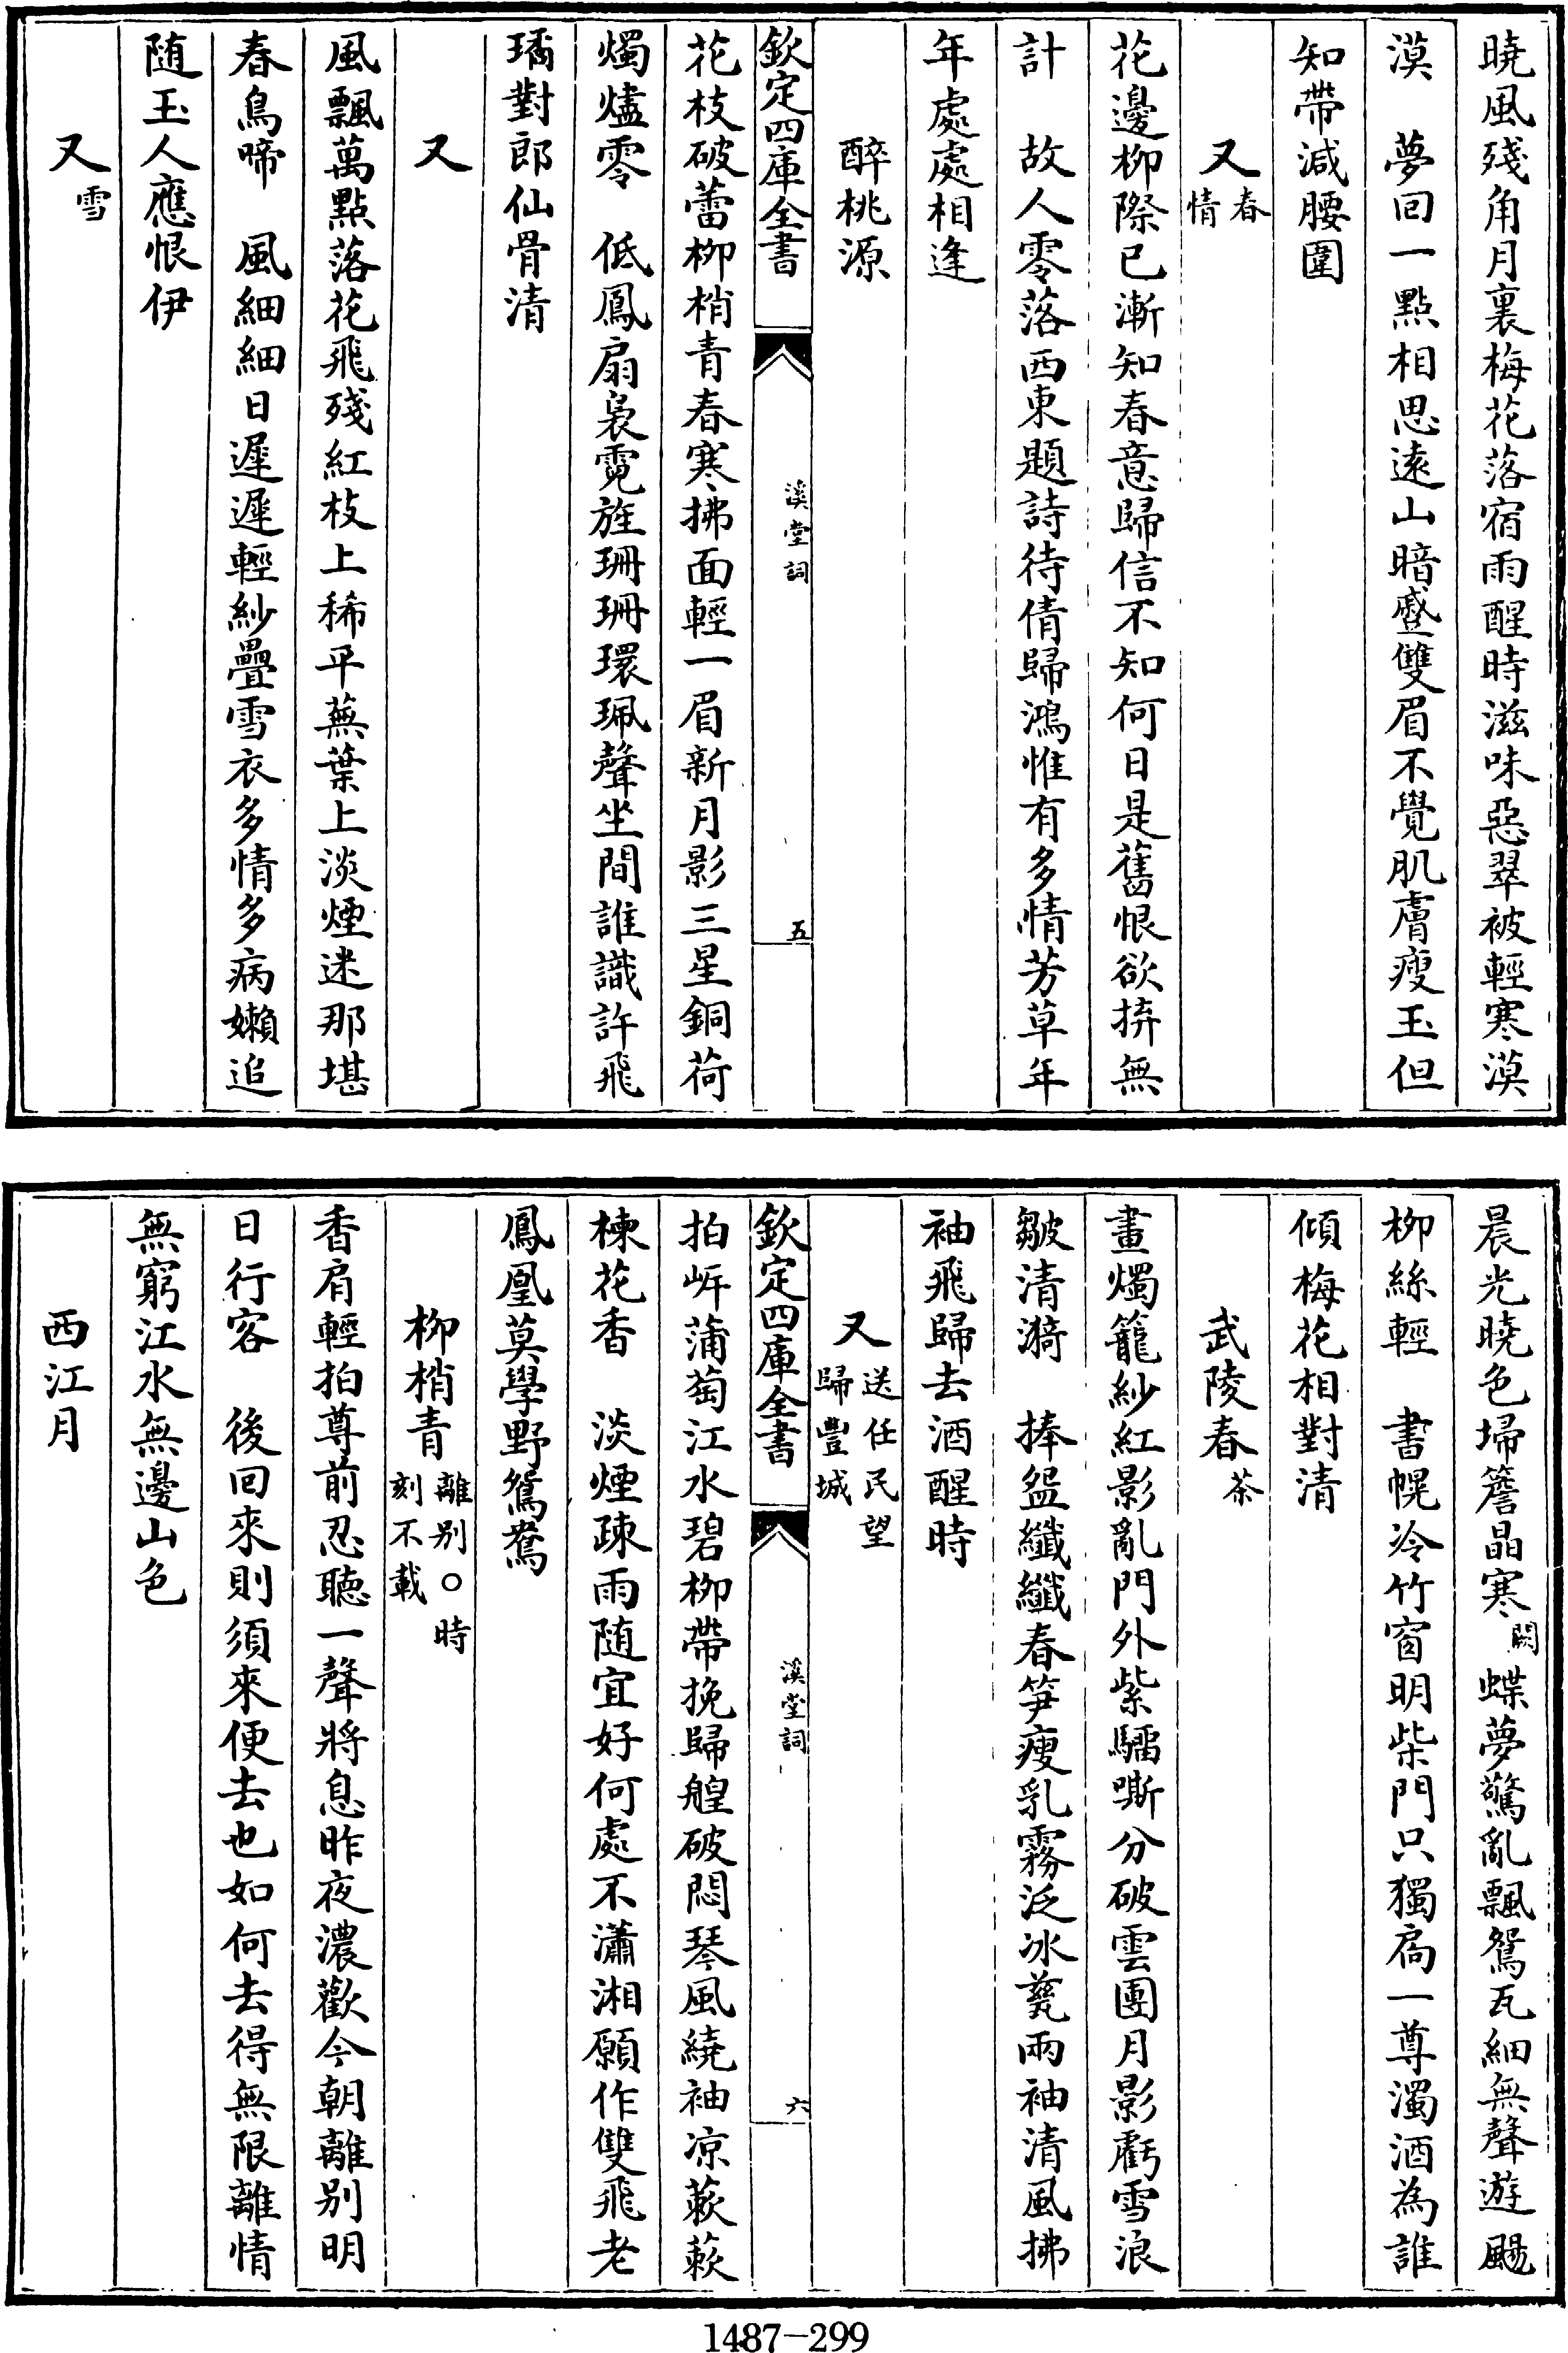 曉風殘角月裏梅花落宿雨醒時滋味惡翠被輕寒漠
漠　夢回一點相思遠山暗蹙雙眉不覺肌膚瘦玉但
知帶減腰圍
又春情
花邊柳際已漸知春意歸信不知何日是舊恨欲拚無
計　故人零落西東題詩待倩歸鴻惟有多情芳草年
年處處相逢
醉桃源
欽定四庫全書
溪堂詞
五
花枝破蕾柳梢青春寒拂面輕一眉新月影三星銅荷
燭燼零　低鳳扇裊霓旌珊珊環珮聲坐間誰識許飛
璚對郎仙骨清
又
風飄萬點落花飛殘紅枝上稀平蕪葉上淡煙迷那堪
春鳥啼　風細細日遲遲輕紗疊雪衣多情多病嬾追
隨玉人應恨伊
又雪
晨光曉色埽簷晶寒闕蝶夢驚亂飄鴛瓦細無聲遊颺
柳絲輕　書幌冷竹窗明柴門只獨扃一尊濁酒為誰
傾梅花相對清
武陵春茶
畫燭籠紗紅影亂門外紫騮嘶分破雲團月影虧雪浪
皺清漪　捧盌纖纖春笋瘦乳霧泛冰甆兩袖清風拂
袖飛歸去酒醒時
又送任民望歸豐城
欽定四庫全書
溪堂詞
六
拍岸蒲萄江水碧柳帶挽歸艎破悶琴風繞袖凉蔌蔌
楝花香　淡煙疎雨隨宜好何處不瀟湘願作雙飛老
鳳凰莫學野鴛鴦
柳梢青離別○時刻不載
香肩輕拍尊前忍聽一聲將息昨夜濃歡今朝離別明
日行客　後回來則須來便去也如何去得無限離情
無窮江水無邊山色
西江月
1487-299